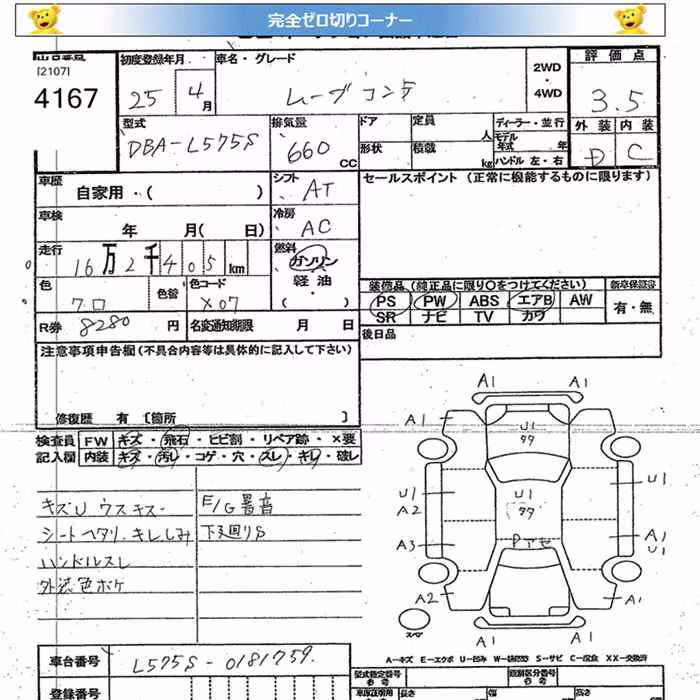 完全ゼロ切りコーナー
[2107]
4167
初度登録年月
25 4月
車名・グレード
ムーブ コンテ
2WD
・
4WD
評価点
3.5
外装 内装
D C
型式
DBA-L575S
排気量
660 CC
ドア
定員
人
形状
積載
kg
ディーラー・並行
モデル年式 年
ハンドル 左・右
車歴
自家用・( )
シフト
AT
セールスポイント (正常に機能するものに限ります)
車検
年 月( 日)
冷房
AC
走行
16万2千405km
燃料
ガソリン
軽油
・( )
色
クロ
色替
色コード
X07
装備品(純正品に限り○をつけてください)
PS PW ABS エアB AW
SR ナビ TV カワ
新車保証書
有・無
R券 8280 円
名変通知期限 月 日
後日品
注意事項申告欄(不具合内容等は具体的に記入して下さい)
修復歴 有 〔箇所 〕
検査員
記入欄
FW キズ・飛石・ヒビ割・リペア跡・×要
内装 キズ・汚レ・コゲ・穴・スレ・キレ・破レ
キズU ウスキズー E/G異音
シートヘタリ・キレ・しみ 下廻りS
ハンドルスレ
外装色ボケ
A1
A1 A1
U1
タタ
U1 U1
A2
U1
タタ
A3 A1
U1
Pアセ
A2 A1
A1 A1
スペア
A-キズ E-エクボ U-凹み W-補修跡 S-サビ C-腐食 XX-交換済
車台番号
L575S-0181759
登録番号
型式指定番号
類別区分番号
長さ
幅
高さ